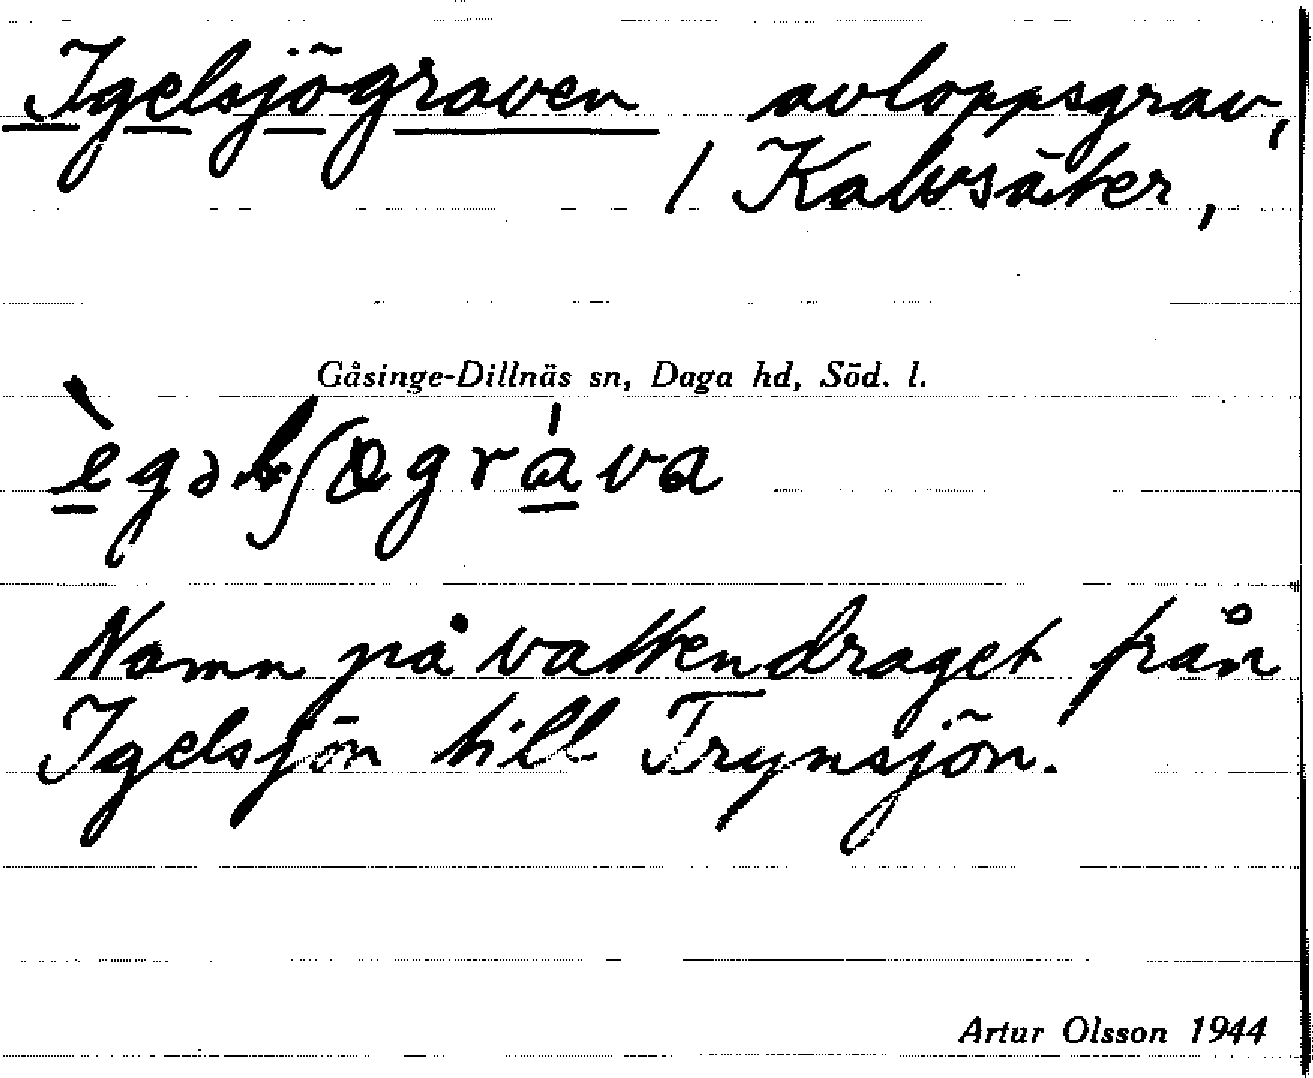 Igelsjögraven avloppsgrav,
/ Kalvsäter,
Gåsinge-Dillnäs sn, Daga hd, Söd. l.
Namn på vattendraget från
Igelsjön till Trynsjön.
Artur Olsson 1944